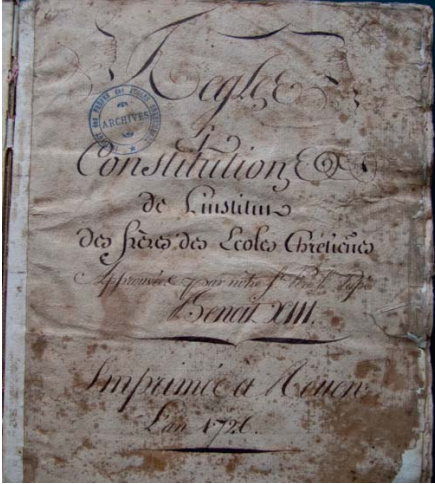 Regles
&
Constitutions
de L'institut
des frères des Ecoles Chrétiènes
Approuvées par nôtre St Pere le Pape
Benoit XIII.
Imprimée a Rouen
L'an 1726.
ARCHIVES